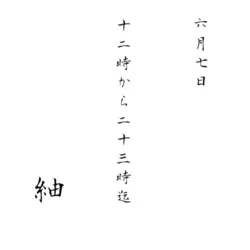 六月七日
十二時から二十三時迄
紬